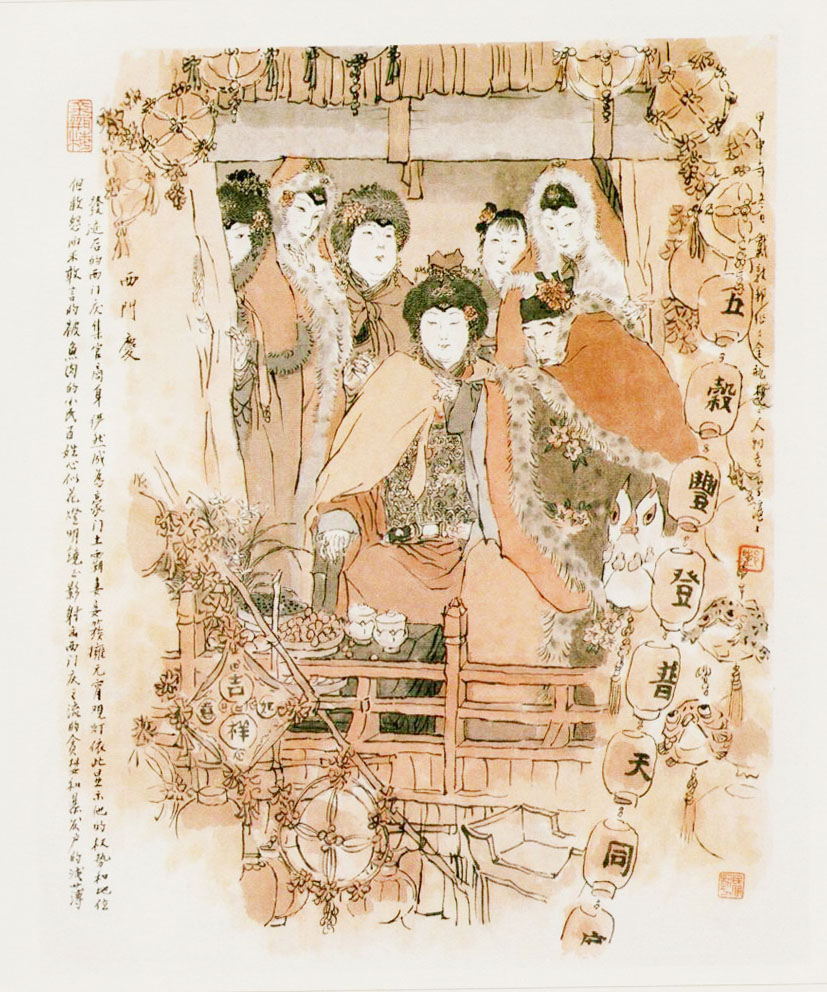 甲申年 戴敦邦作 金瓶梅 人物
五穀豐登普天同
西門慶
發迹后的西门庆集官商 成为豪门土霸妻妾簇擁元宵观灯依此显示他的权势和地位
但敢怒而不敢言的被鱼肉的小民百姓心似花燈明鏡 影射出西门庆之流的贪婪和暴发户的浅薄
吉祥